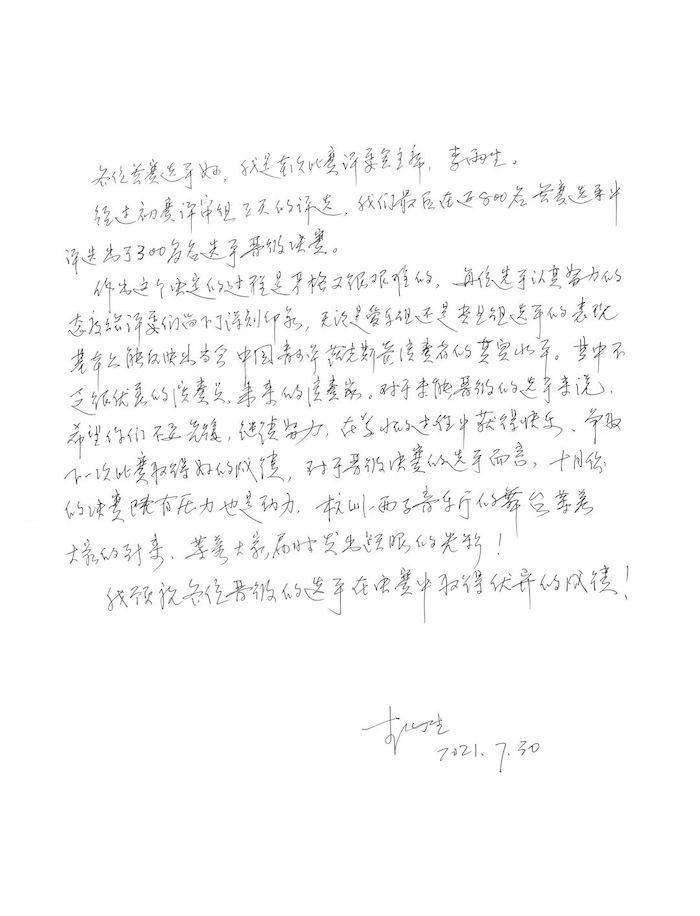 各位参赛选手好，我是本次比赛评委会主席，李雨生。
经过初赛评审组三天的评选，我们最后在近800名参赛选手中
评选出了300多名选手晋级决赛。
作出这个决定的过程是严格又很艰难的，每位选手认真努力的
态度给评委们留下了深刻印象，无论是业余组还是专业组选手的表现
基本上能反映出当今中国青少年萨克斯管演奏者的真实水平。其中不
乏很优秀的演奏员、未来的演奏家。对于未能晋级的选手来说，
希望你们不要气馁，继续努力，在学习的过程中获得快乐、争取
下一次比赛取得好的成绩，对于晋级决赛的选手而言，十月份
的决赛既有压力也是动力，杭州西子音乐厅的舞台等着
大家的到来、等着大家届时发出耀眼的光彩！
我预祝各位晋级的选手在决赛中取得优异的成绩！
李雨生
2021.7.30